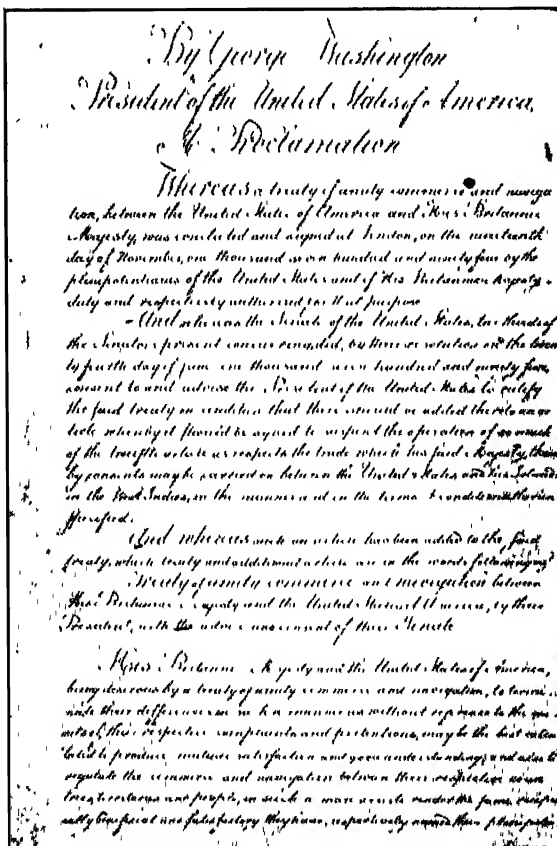 By George Washington
President of the United States of America,
A Proclamation
Whereas a treaty of amity commerce and naviga
tion, between the United States of America and His Britannic
Majesty, was concluded and signed at London, on the nineteenth
day of November, one thousand seven hundred and ninety four by the
plenipotentiaries of the United States and of His Britannic Majesty
duly and respectively authorized for that purpose
And whereas the Senate of the United States, two thirds of
the Senators present concurring did, by their resolution on the twen
ty fourth day of june one thousand seven hundred and ninety five,
consent to and advise the President of the United States to ratify
the said treaty on condition that there should be added thereto an ar
ticle whereby it should be agreed to suspend the operation of so much
of the twelfth article as respects the trade which his said Majesty, there
by consents may be carried on between the United States and his Islands
in the West Indies, in the manner and on the terms & conditions therein
specified.
And whereas such an article has been added to the said
treaty, which treaty and additional article are in the words following
Treaty of amity commerce and navigation between
His Britannic Majesty and the United States of America, by their
President, with the advice and consent of their Senate
His Britannic Majesty and the United States of America,
being desirous by a treaty of amity commerce and navigation, to termi
nate their differences in such a manner as without reference to the me
rits of their respective complaints and pretentions, may be the best calcu
lated to produce mutual satisfaction and good understanding; and also to
regulate the commerce and navigation between their respective coun
tries, territories and people, in such a manner as to render the same recipro
cally beneficial and satisfactory they have, respectively named their plenipoten